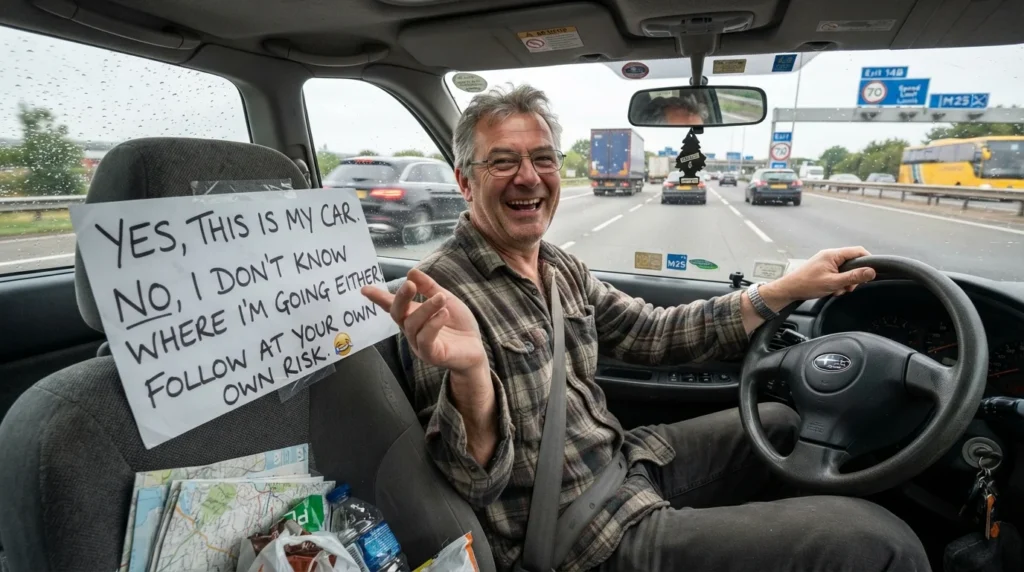 YES, THIS IS MY CAR.
NO, I DON'T KNOW
WHERE I'M GOING EITHER
FOLLOW AT YOUR OWN
OWN RISK. 😂
Exit 14B
70
M25
70
M25
SUBARU